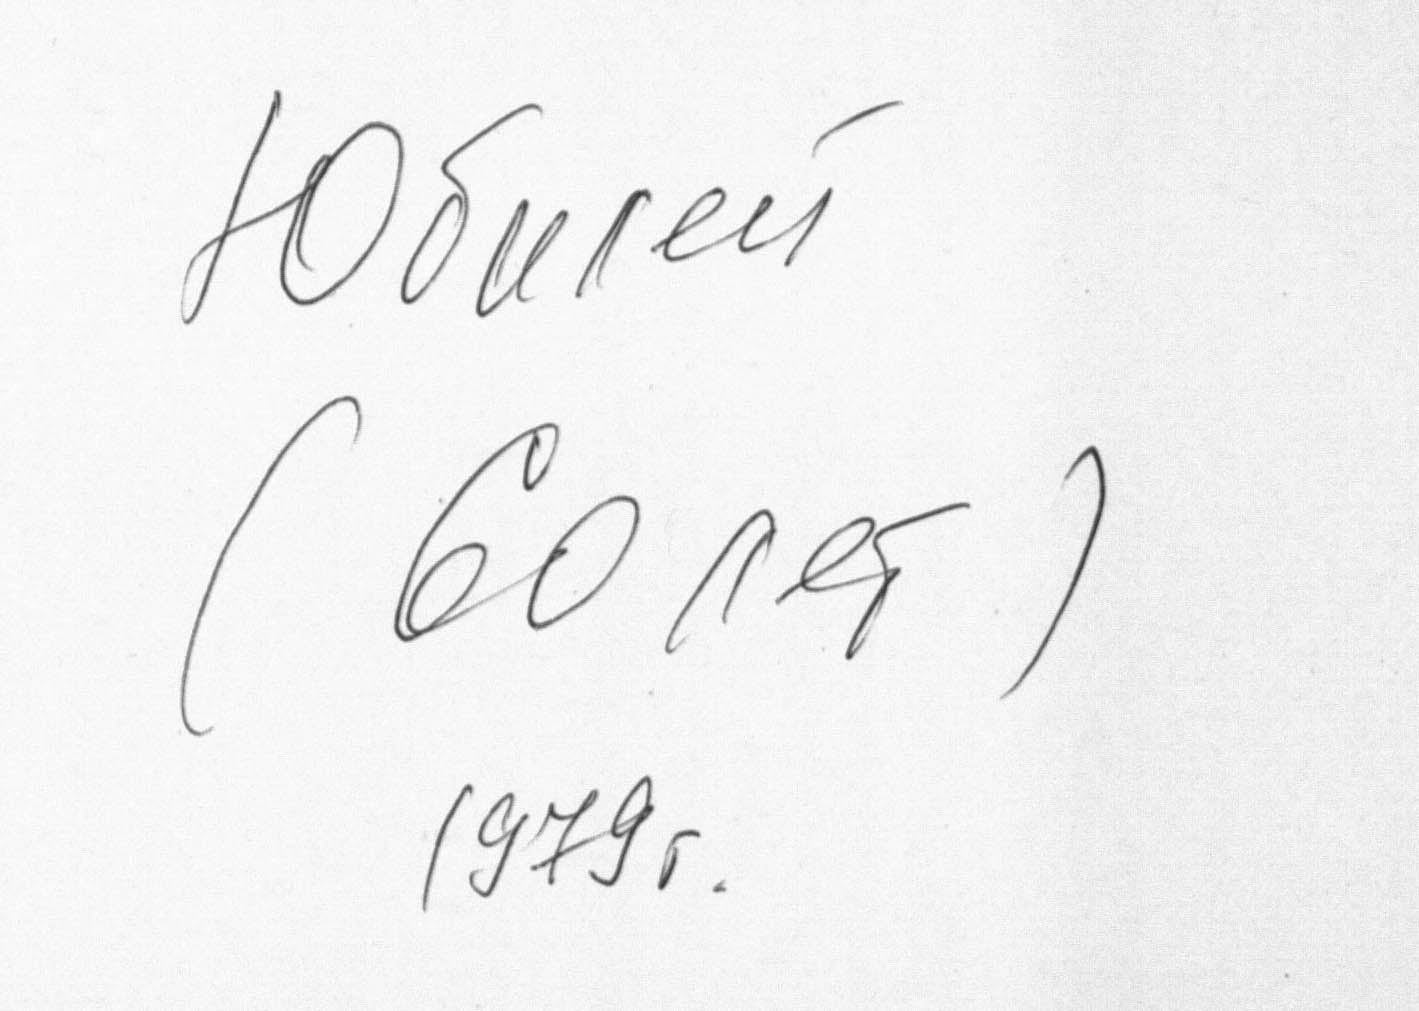 Юбилей
(60 лет)
1979г.